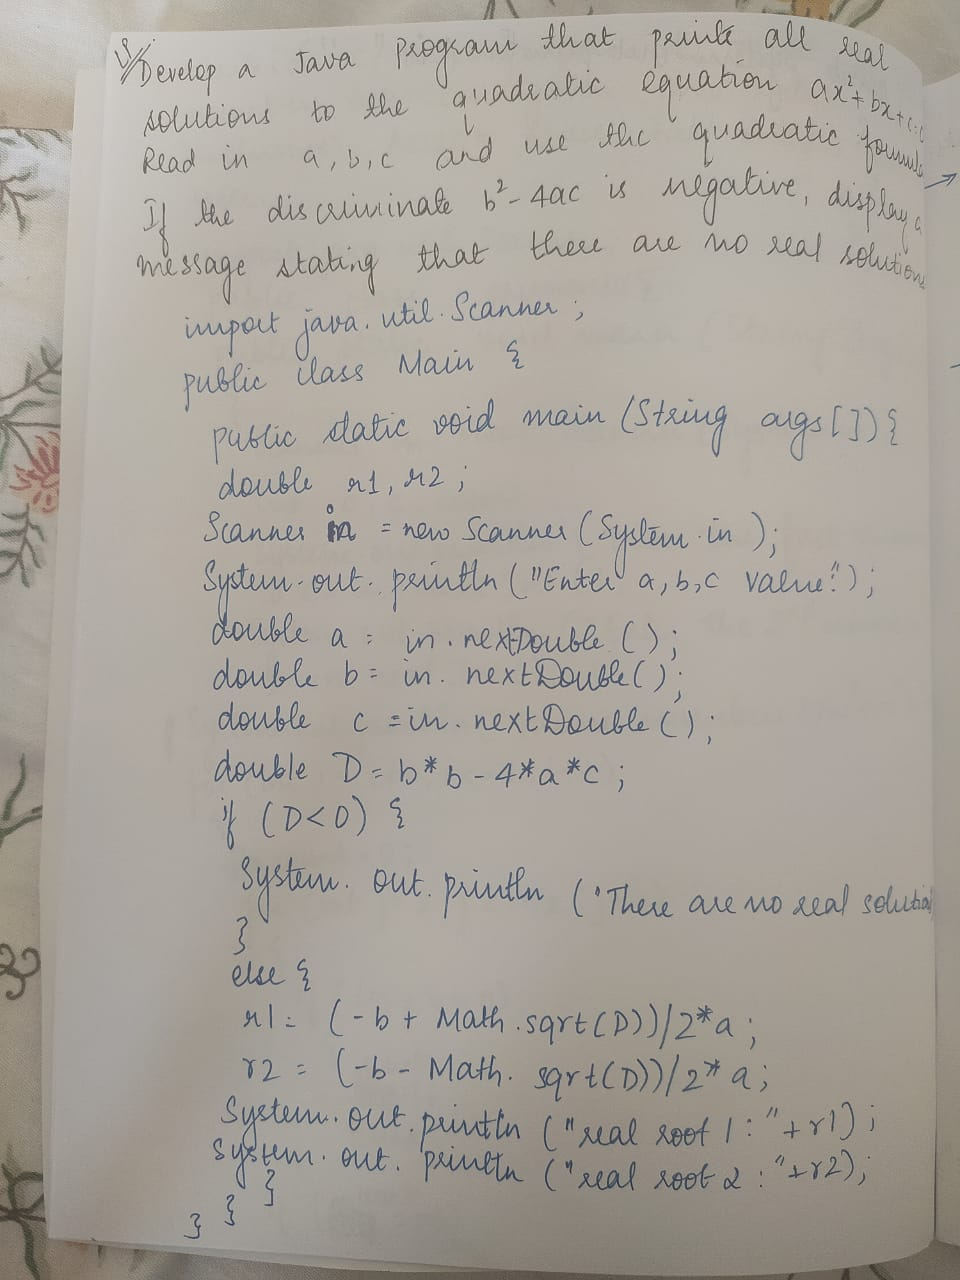 1/ Develop a Java program that prints all real
solutions to the quadratic equation ax²+bx+c=0
Read in a, b, c and use the quadratic formula
If the discriminate b²-4ac is negative, display a
message stating that there are no real solutions
import java.util.Scanner;
public class Main {
public static void main (String args[]){
double r1, r2;
Scanner in = new Scanner (System.in);
System.out.println ("Enter a, b, c value:");
double a = in.nextDouble ();
double b = in.nextDouble();
double c = in.nextDouble ();
double D = b*b - 4*a*c;
if (D<0) {
System.out.println ("There are no real solution
}
else {
r1 = (-b + Math.sqrt(D))/2*a;
r2 = (-b - Math.sqrt(D))/2*a;
System.out.println ("real root 1: "+r1);
System.out.println ("real root 2: "+r2);
}
}
}